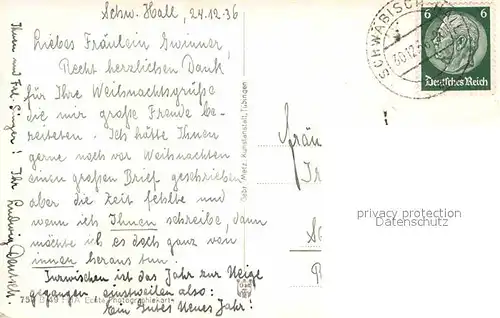 Schw. Hall, 24.12.36
Liebes Fräulein Gwinner,
Recht herzlichen Dank
für Ihre Weihnachtsgrüße
die mir große Freude be-
reiteten. Ich hätte Ihnen
gerne noch vor Weihnachten
einen großen Brief geschrieben
aber die Zeit fehlte und
wenn ich Ihnen schreibe, dann
möchte ich es doch ganz von
innen heraus tun.
Inzwischen ist das Jahr zur Neige
gegangen, einstweilen also:
Ein Gutes Neues Jahr!
Ihnen und Frl. Singer! Ihr Ludwig
Gebr. Metz, Kunstanstalt, Tübingen
Echte Photographiekarte
SCHWÄBISCH HALL
30.12.36
6 6
Deutsches Reich
Fräu
privacy protection
watermark